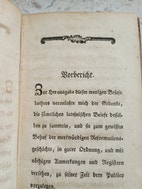 Vorbericht.
Zur Herausgabe dieser wenigen Briefe
Luthers veranlaßte mich der Gedanke,
die sämtlichen lateinischen Briefe desselb
en zu sammeln, und so zum gewissen
Behuf der merkwürdigen Reformations-
geschichte, in guter Ordnung, und mit
nöthigen Anmerkungen und Registern
versehen, zu seiner Zeit dem Publico
vorzulegen.